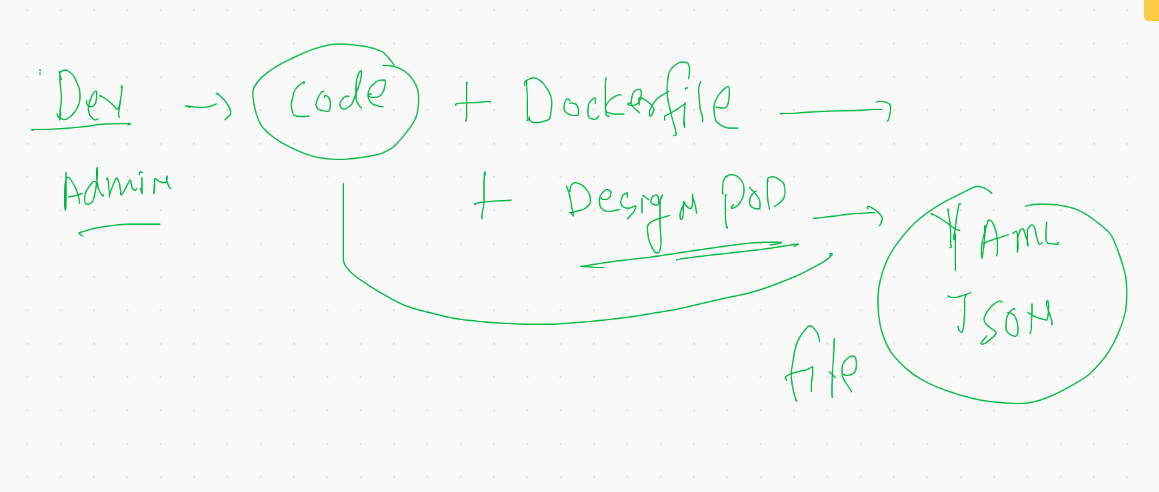 Dev → Code + Dockerfile →
Admin + Design POD → YAML
JSON
file